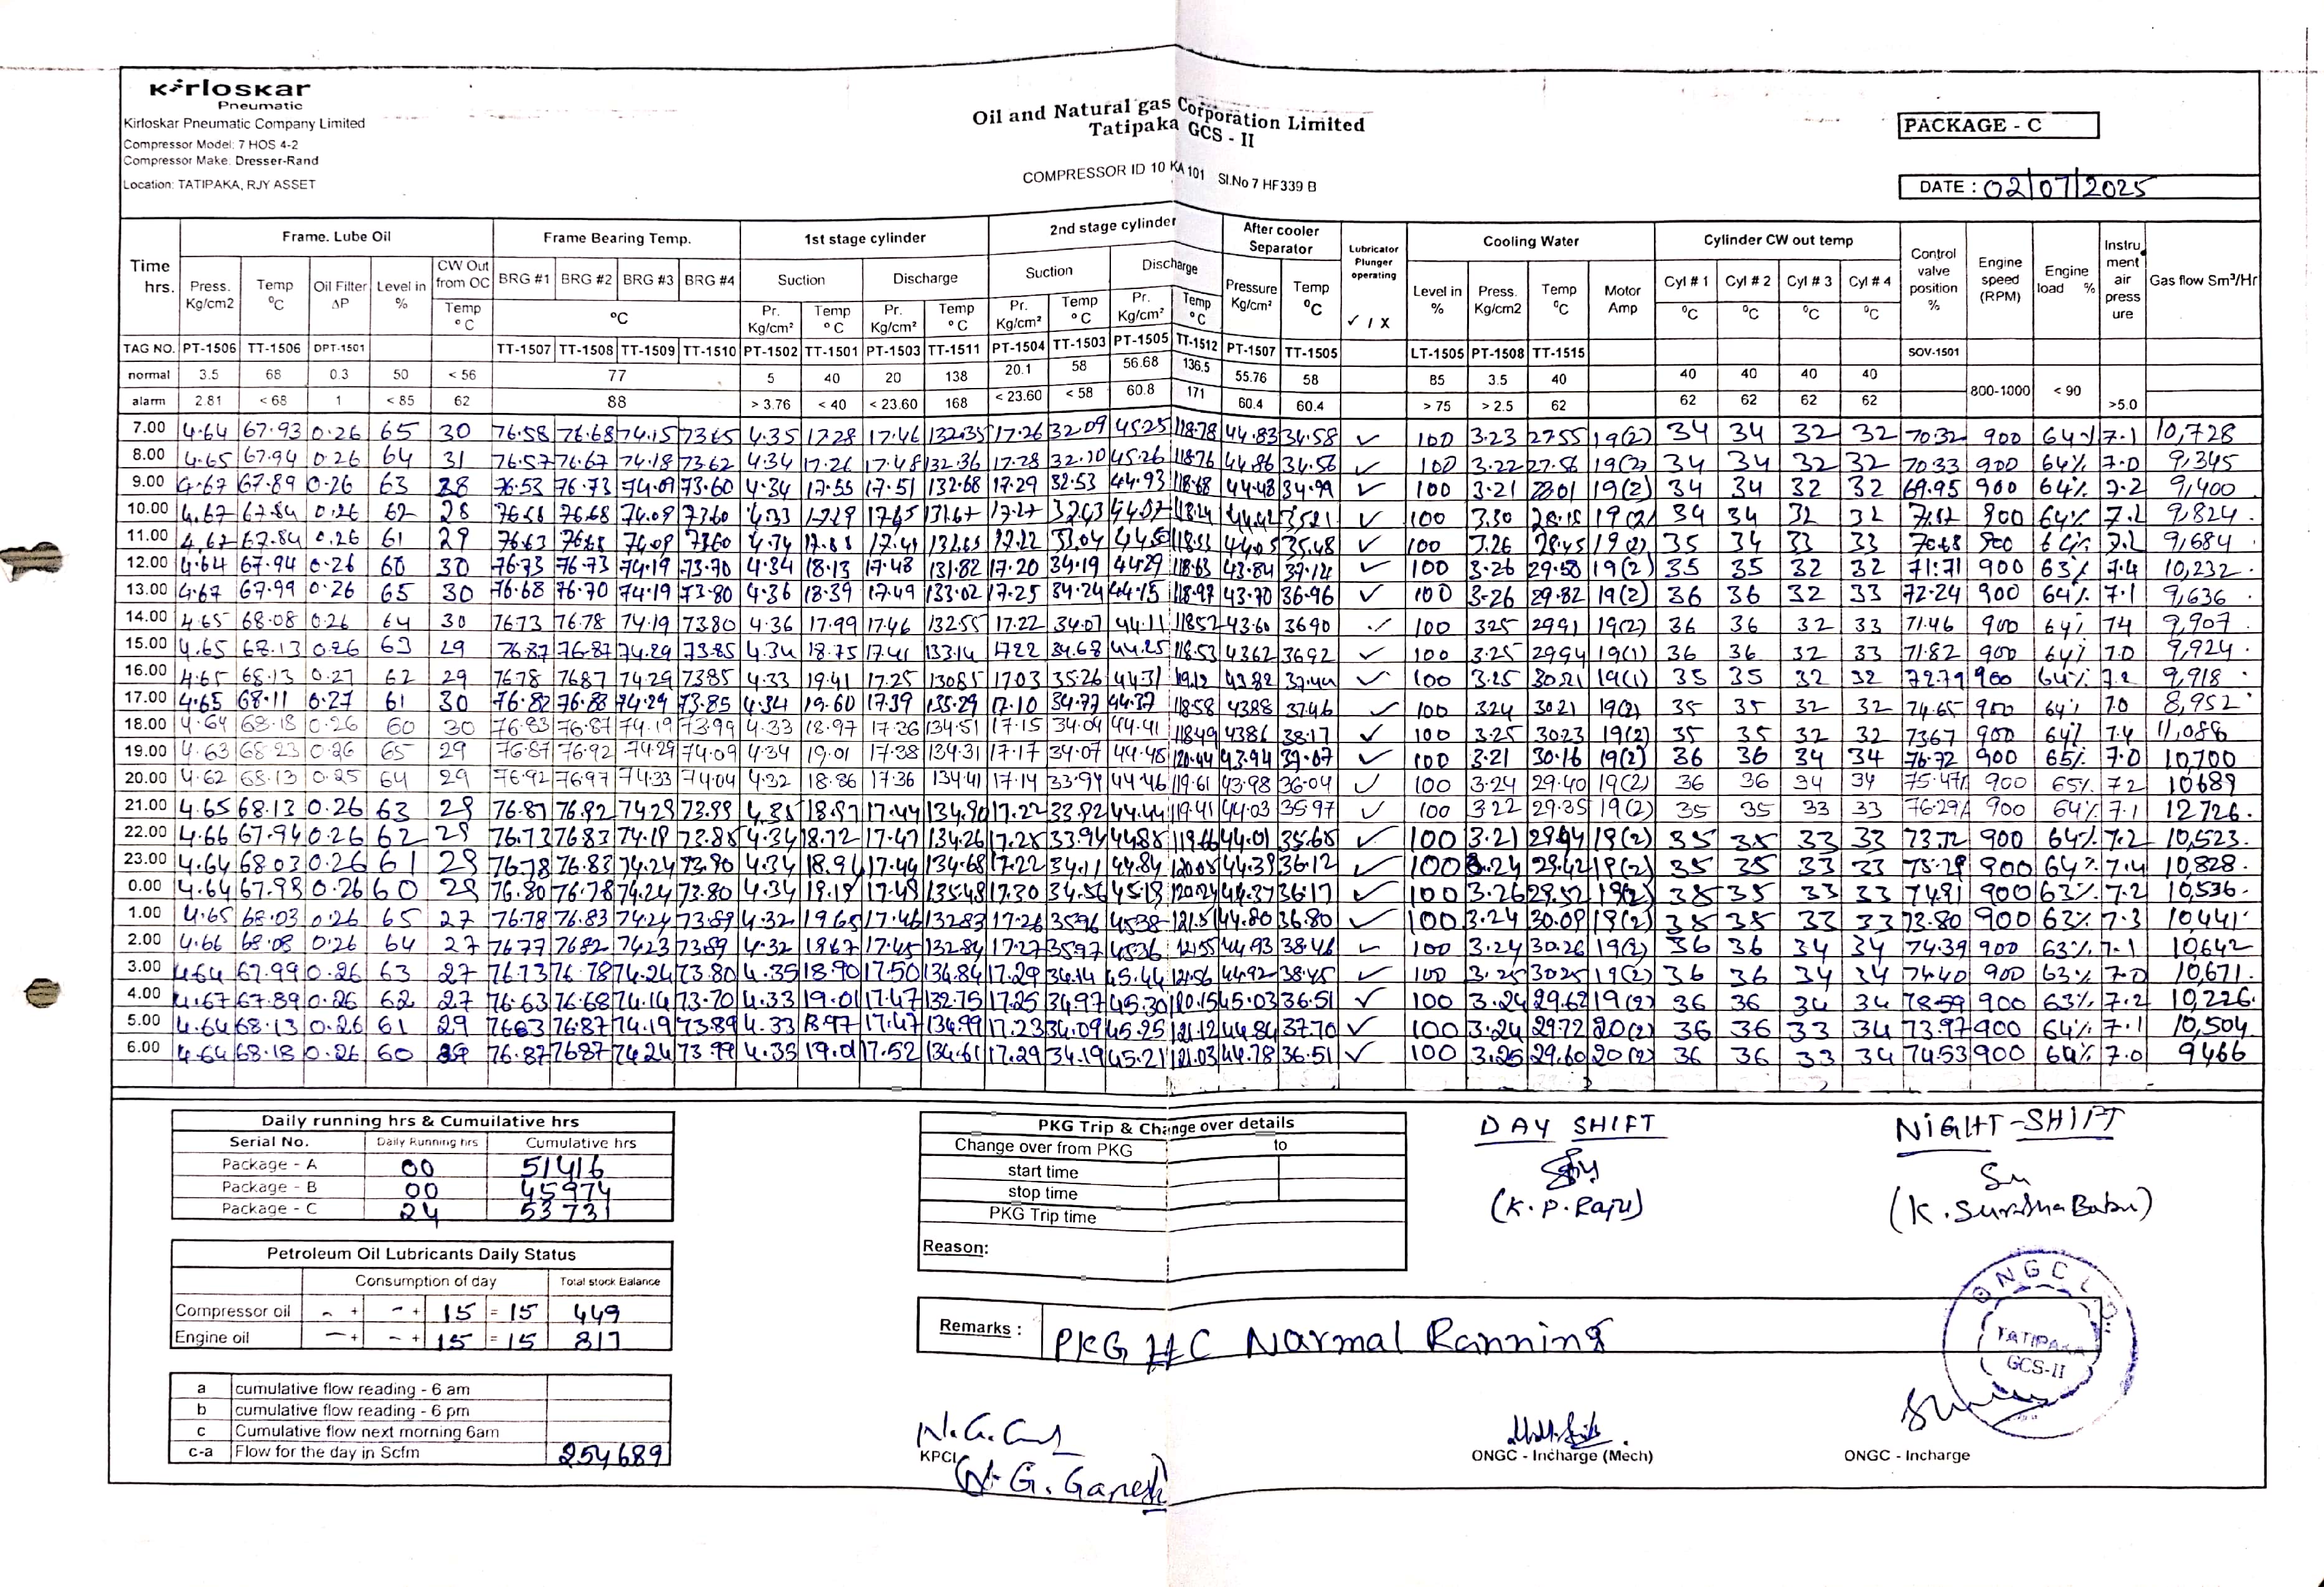 Kirloskar
Pneumatic
Kirloskar Pneumatic Company Limited
Compressor Model: 7 HOS 4-2
Compressor Make: Dresser-Rand
Location: TATIPAKA, RJY ASSET
Oil and Natural gas Corporation Limited
Tatipaka GCS - II
COMPRESSOR ID 10 KA 101 Sl.No 7 HF339 B
PACKAGE - C
DATE : 02/07/2025
Time hrs. Frame. Lube Oil Frame Bearing Temp. 1st stage cylinder 2nd stage cylinder After cooler Separator Lubricator Plunger operating Cooling Water Cylinder CW out temp Control valve position % Engine speed (RPM) Engine load % Instru ment air press ure Gas flow Sm³/Hr
Press. Kg/cm2 Temp ºC Oil Filter ΔP Level in % CW Out from OC Temp ºC BRG #1 BRG #2 BRG #3 BRG #4 ºC Suction Discharge Suction Discharge Pressure Kg/cm² Temp ºC ✓ / X Level in % Press. Kg/cm2 Temp ºC Motor Amp Cyl # 1 Cyl # 2 Cyl # 3 Cyl # 4
Pr. Kg/cm² Temp ºC Pr. Kg/cm² Temp ºC Pr. Kg/cm² Temp ºC Pr. Kg/cm² Temp ºC ºC ºC ºC ºC
TAG NO. PT-1506 TT-1506 DPT-1501 TT-1507 TT-1508 TT-1509 TT-1510 PT-1502 TT-1501 PT-1503 TT-1511 PT-1504 TT-1503 PT-1505 TT-1512 PT-1507 TT-1505 LT-1505 PT-1508 TT-1515 SOV-1501
normal 3.5 68 0.3 50 < 56 77 5 40 20 138 20.1 58 56.68 136.5 55.76 58 85 3.5 40 40 40 40 40 800-1000 < 90
alarm 2.81 < 68 1 < 85 62 88 > 3.76 < 40 < 23.60 168 < 23.60 < 58 60.8 171 60.4 60.4 > 75 > 2.5 62 62 62 62 62 >5.0
7.00 4.64 67.93 0.26 65 30 76.58 76.68 74.15 73.65 4.35 17.28 17.46 132.35 17.26 32.09 45.25 118.78 44.83 34.58 ✓ 100 3.23 27.55 19(2) 34 34 32 32 70.32 900 64% 7.1 10,728
8.00 4.65 67.94 0.26 64 31 76.57 76.67 74.18 73.62 4.34 17.26 17.48 132.36 17.28 32.10 45.26 118.76 44.86 34.56 ✓ 100 3.22 27.56 19(2) 34 34 32 32 70.33 900 64% 7.0 9,345
9.00 4.67 67.89 0.26 63 28 76.53 76.73 74.09 73.60 4.34 17.55 17.51 132.68 17.29 32.53 44.93 118.68 44.48 34.99 ✓ 100 3.21 28.01 19(2) 34 34 32 32 69.95 900 64% 7.2 9,400
10.00 4.67 67.84 0.26 62 28 76.68 74.09 73.60 4.33 131.67 17.27 118.24 35.21 ✓ 100 3.30 28.18 19(2) 34 34 32 32 900 64% 7.2 9,824
11.00 4.67 67.84 0.26 61 29 76.63 76.68 74.09 73.60 4.34 17.41 17.22 33.04 35.48 ✓ 100 3.26 28.45 19(2) 35 34 33 33 70.68 900 64% 7.2 9,684
12.00 4.64 67.94 0.26 60 30 76.73 76.73 74.19 73.70 4.34 18.13 17.48 131.82 17.20 34.19 44.29 118.63 43.84 37.12 ✓ 100 3.26 29.58 19(2) 35 35 32 32 71.71 900 63% 7.4 10,232
13.00 4.67 67.99 0.26 65 30 76.68 76.70 74.19 73.80 4.36 18.39 17.49 133.02 17.25 34.24 44.15 118.97 43.70 36.96 ✓ 100 3.26 29.82 19(2) 36 36 32 33 72.24 900 64% 7.1 9,636
14.00 4.65 68.08 0.26 64 30 76.73 76.78 74.19 73.80 4.36 17.99 17.46 132.55 17.22 34.07 44.11 118.52 43.60 36.90 ✓ 100 3.25 29.91 19(2) 36 36 32 33 71.46 900 64% 7.4 9,907
15.00 4.65 68.13 0.26 63 29 76.87 76.87 74.29 73.85 4.34 18.75 17.41 133.14 17.22 34.68 44.25 118.53 43.62 36.92 ✓ 100 3.25 29.94 19(1) 36 36 32 33 71.82 900 64% 7.0 9,924
16.00 4.65 68.13 0.27 62 29 76.78 76.87 74.29 73.85 4.33 19.41 17.25 130.85 17.03 35.26 44.31 119.12 43.82 37.44 ✓ 100 3.25 30.21 19(1) 35 35 32 32 72.79 900 64% 7.2 9,918
17.00 4.65 68.11 0.27 61 30 76.82 76.88 74.29 73.85 4.34 19.60 17.39 135.29 17.10 34.77 44.37 118.58 43.88 37.46 ✓ 100 3.24 30.21 19(2) 35 35 32 32 74.65 900 64% 7.0 8,952
18.00 4.64 68.18 0.26 60 30 76.83 76.87 74.19 73.99 4.33 18.97 17.36 134.51 17.15 34.04 44.41 118.49 43.86 38.17 ✓ 100 3.25 30.23 19(2) 35 35 32 32 73.67 900 64% 7.4 11,088
19.00 4.63 68.23 0.26 65 29 76.87 76.92 74.29 74.09 4.34 19.01 17.38 134.31 17.17 34.07 44.45 120.44 43.94 39.07 ✓ 100 3.21 30.16 19(2) 36 36 34 34 76.72 900 65% 7.0 10,700
20.00 4.62 68.13 0.25 64 29 76.92 76.97 74.33 74.04 4.32 18.86 17.36 134.41 17.14 33.94 44.46 119.61 43.98 36.04 ✓ 100 3.24 29.40 19(2) 36 36 34 34 75.47% 900 65% 7.2 10689
21.00 4.65 68.13 0.26 63 29 76.87 76.82 74.29 73.99 4.35 18.97 17.44 134.90 17.22 33.82 44.44 119.41 44.03 35.97 ✓ 100 3.22 29.35 19(2) 35 35 33 33 76.29% 900 64% 7.1 12726.
22.00 4.66 67.94 0.26 62 29 76.73 76.83 74.19 73.85 4.34 18.72 17.47 134.26 17.28 33.94 44.88 119.66 44.01 35.65 ✓ 100 3.21 29.44 19(2) 35 35 33 33 73.72 900 64% 7.2 10,523.
23.00 4.64 68.03 0.26 61 29 76.78 76.83 74.24 73.90 4.34 18.94 17.49 134.68 17.22 34.11 44.84 120.08 44.39 36.12 ✓ 100 3.24 29.42 19(2) 35 35 33 33 75.29 900 64% 7.4 10,828.
0.00 4.64 67.98 0.26 60 29 76.80 76.78 74.24 73.80 4.34 19.19 17.49 135.48 17.30 34.56 45.19 120.24 44.37 36.17 ✓ 100 3.26 29.52 19(2) 35 35 33 33 74.91 900 63% 7.2 10,536.
1.00 4.65 68.03 0.26 65 27 76.78 76.83 74.24 73.89 4.32 19.65 17.46 132.83 17.26 35.96 45.38 121.51 44.80 36.80 ✓ 100 3.24 30.09 19(2) 35 35 33 33 73.80 900 63% 7.3 10,441
2.00 4.66 68.08 0.26 64 27 76.77 76.82 74.23 73.89 4.32 19.67 17.45 132.84 17.27 35.97 45.36 121.55 44.93 38.46 ✓ 100 3.24 30.26 19(2) 36 36 34 34 74.39 900 63% 7.1 10,642
3.00 4.64 67.99 0.26 63 27 76.73 76.78 74.24 73.80 4.35 18.90 17.50 136.84 17.29 34.14 45.44 121.56 44.92 38.45 ✓ 100 3.25 30.25 19(2) 36 36 34 34 74.40 900 63% 7.0 10,671.
4.00 4.67 67.89 0.26 62 27 76.63 76.68 74.14 73.70 4.33 19.01 17.47 132.75 17.25 34.97 45.30 120.15 45.03 36.51 ✓ 100 3.24 29.62 19(2) 36 36 34 34 78.59 900 63% 7.2 10,226.
5.00 4.64 68.13 0.26 61 29 76.63 76.87 74.19 73.89 4.33 18.97 17.47 134.99 17.23 34.09 45.25 121.12 44.84 37.70 ✓ 100 3.24 29.72 20(2) 36 36 33 34 73.97 900 64% 7.1 10,504.
6.00 4.64 68.18 0.26 60 29 76.87 76.87 74.24 73.99 4.35 19.01 17.52 134.61 17.29 34.19 45.21 121.03 44.78 36.51 ✓ 100 3.25 29.60 20(2) 36 36 33 34 74.53 900 64% 7.0 9466
Daily running hrs & Cumuilative hrs
Serial No. Daily Running hrs Cumulative hrs
Package - A 00 51416
Package - B 00 45974
Package - C 24 53731
Petroleum Oil Lubricants Daily Status
Consumption of day Total stock Balance
Compressor oil - + - + 15 = 15 449
Engine oil - + - + 15 = 15 817
a cumulative flow reading - 6 am
b cumulative flow reading - 6 pm
c Cumulative flow next morning 6am
c-a Flow for the day in Scfm 254689
PKG Trip & Change over details
Change over from PKG to
start time
stop time
PKG Trip time
Reason:
DAY SHIFT
(K.P.Raju)
NIGHT-SHIFT
Remarks : PKG #C Normal Running
ONGC L
TATIPAKA
GCS-II
KPCL
(N.G.Ganesh)
ONGC - Incharge (Mech)
ONGC - Incharge